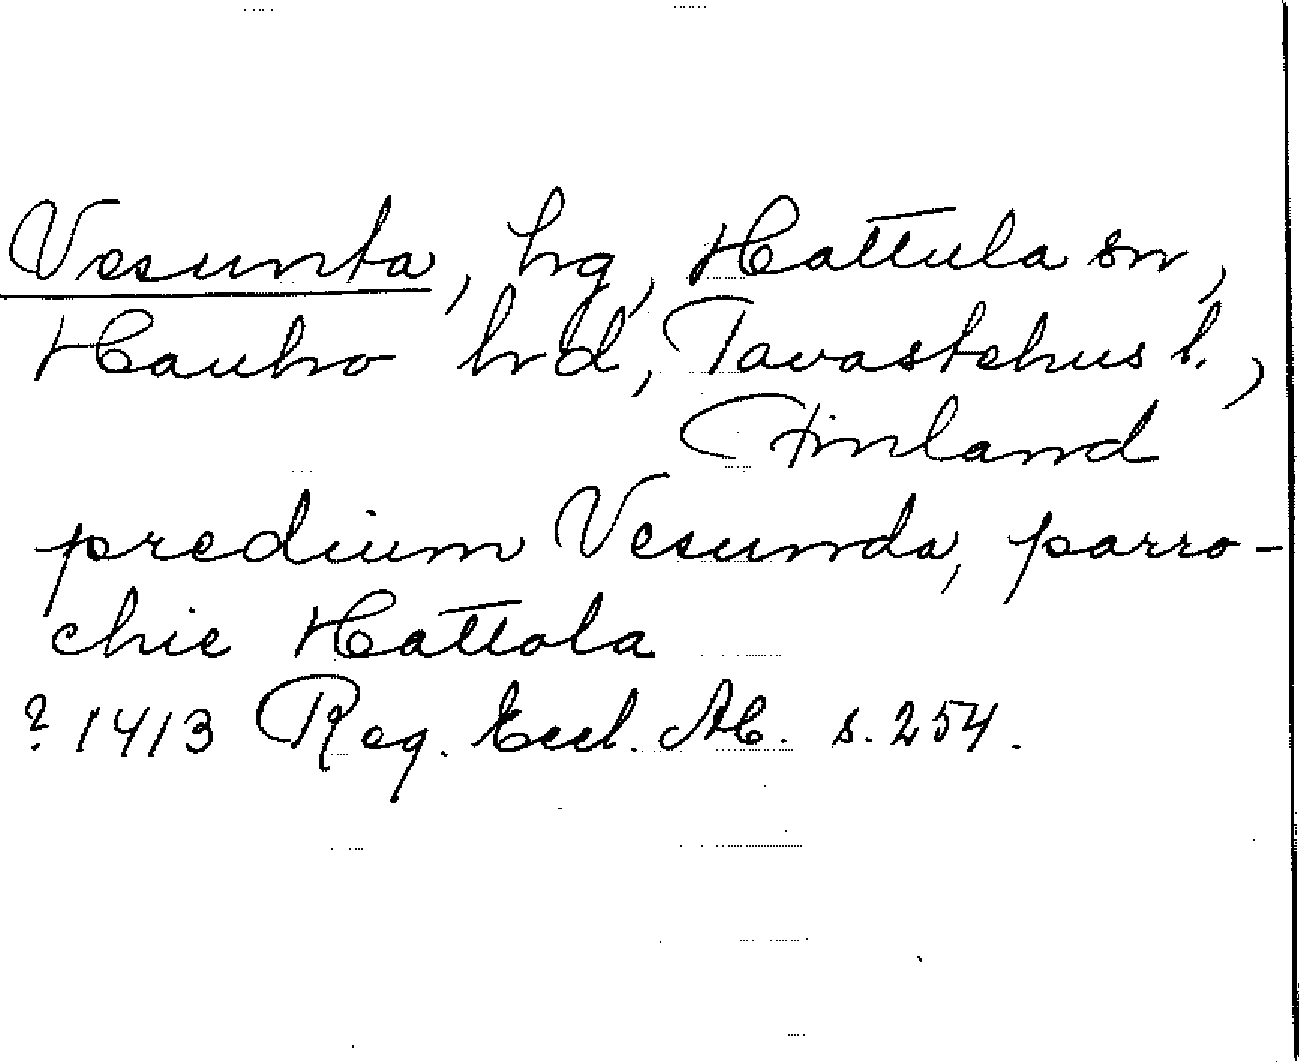 Vesunta, hg, Hattula sn,
Hauho hrd, Tavastehus l.,
Finland
predium Vesunda, parro-
chie Hattola
? 1413 Reg. Eccl. Ab. s. 254.